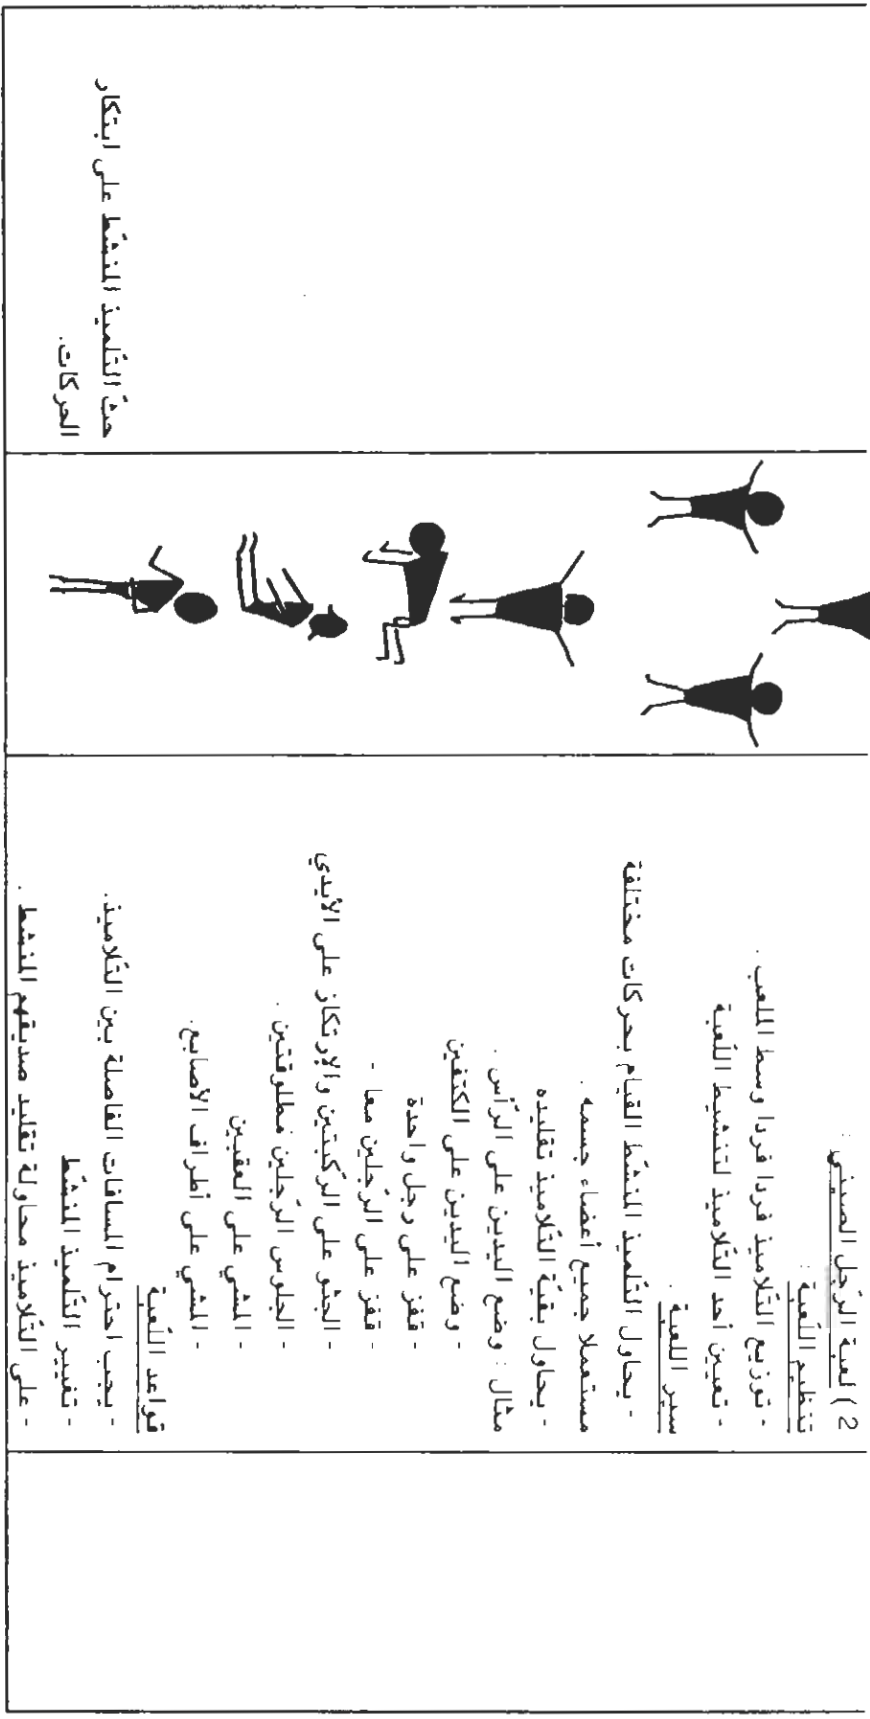 2) لعبة الرّجل الصيني :
تنظيم اللّعبة :
- توزيع التّلاميذ فردا فردا وسط الملعب .
- تعيين أحد التّلاميذ لتنشيط اللّعبة
سير اللعبة :
- يحاول التّلميذ المنشّط القيام بحركات مختلفة
مستعملا جميع أعضاء جسمه .
- يحاول بقيّة التّلاميذ تقليده
مثال : وضع اليدين على الرّأس .
- وضع اليدين على الكتفين
- قفز على رجل واحدة
- قفز على الرّجلين معا -
- الجثو على الرّكبتين والإرتكاز على الأيدي
- الجلوس الرّجلين مطلوقتين .
- المشي على العقبين
- المشي على أطراف الأصابع.
قواعد اللّعبة
- يجب احترام المسافات الفاصلة بين التّلاميذ.
- تغيير التّلميذ المنشّط
- على التّلاميذ محاولة تقليد صديقهم المنشط .
حثّ التّلميذ المنشّط على ابتكار
الحركات.